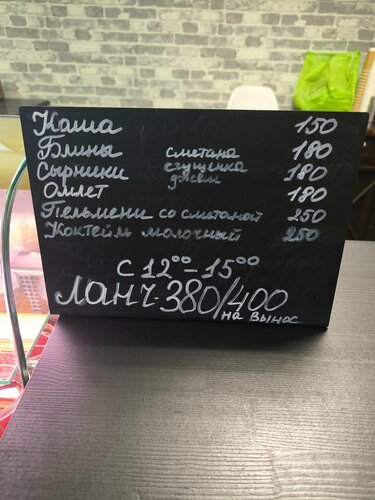 Каша 150
Блины сметана 180
Сырники сгущенка 180
джем
Омлет 180
Пельмени со сметаной 250
Коктейль молочный 250
с 12⁰⁰-15⁰⁰
Ланч-380/400
на вынос